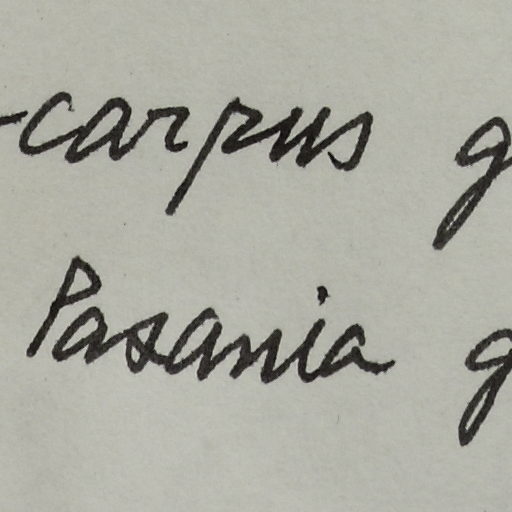 -carpus g
Pasania g